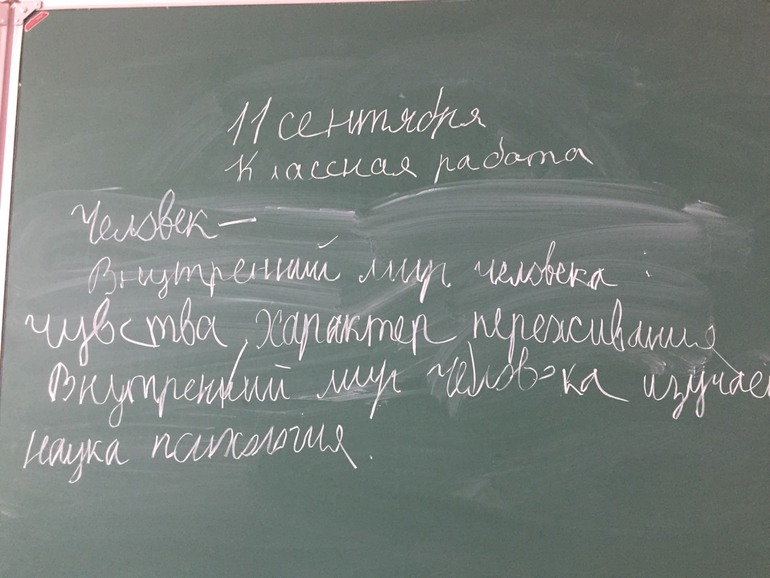 11 сентября
Классная работа
Человек —
Внутренний мир человека :
чувства, характер переживания
Внутренний мир человека изучае
наука психология.